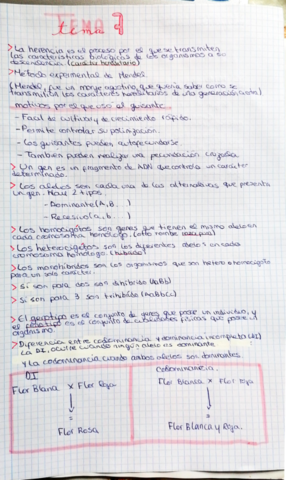 TEMA 7
tema 7
> La herencia es el proceso por el que se transmiten
las características biológicas de los organismos a su
descendencia (carácter hereditario)
> Método experimental de Mendel
(Mendel, fue un monje agustino, que quería saber como se
transmitían los caracteres hereditarios de una generación a otra)
motivos por el que uso el guisante
- Facil de cultivar y de crecimiento rápido.
- Permite controlar su polinización.
- Los guisantes pueden autofecundarse
- También pueden realizar una fecundación cruzada
> Un gen es un fragmento de ADN que controla un carácter
determinado.
> Los alelos son cada una de las alternativas que presenta
un gen. Hay 2 tipos:
- Dominante (A, B, )
- Recesivo (a, b, )
> Los homocigotos son genes que tienen el mismo alelo en
cada cromosoma homólogo. (otro nombre raza pura)
> Los heterocigotos son los diferentes alelos en cada
cromosoma homólogo. (híbrido)
> Los monohíbridos son los organismos que son heterocigoto
para un solo carácter.
> Si son para dos son dihíbrido (AaBb)
> Si son para 3 son trihíbrido (AaBbCc)
> El genotipo es el conjunto de genes que posee un individuo, y
el fenotipo es el conjunto de cualidades físicas que posee un
organismo.
> Diferencia entre codominancia y dominancia incompleta (DI)
La DI, ocurre cuando ningún alelo es dominante.
y la codominancia cuando ambos alelos son dominantes
DI
Flor Blanca x Flor Roja
=
Flor Rosa
Codominancia
Flor Blanca x Flor roja
=
Flor Blanca y Roja.